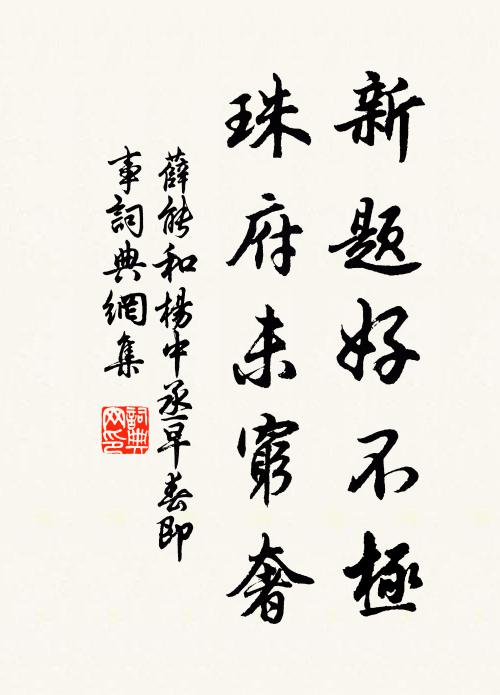 新题好不極
珠府未窮奢
薛能和楊中丞早春即
事詞典網集
詞典网印